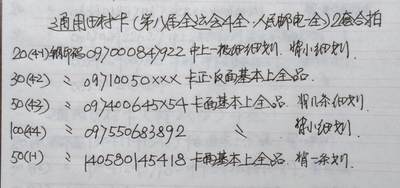 通用田村卡(第八届全运会4全.人民邮电一全)2套合拍
20(4-1)编码097000847922 卡上一根细划. 背小细划.
30(4-2) 〃 09710050××× 卡正.反面基本上全品.
50(4-3) 〃 097400645×54 卡面基本上全品. 背几条细划.
100(4-4) 〃 097550683892 〃 背小细划.
50(1-1) 〃 140580145418 卡面基本上全品. 背一条划.